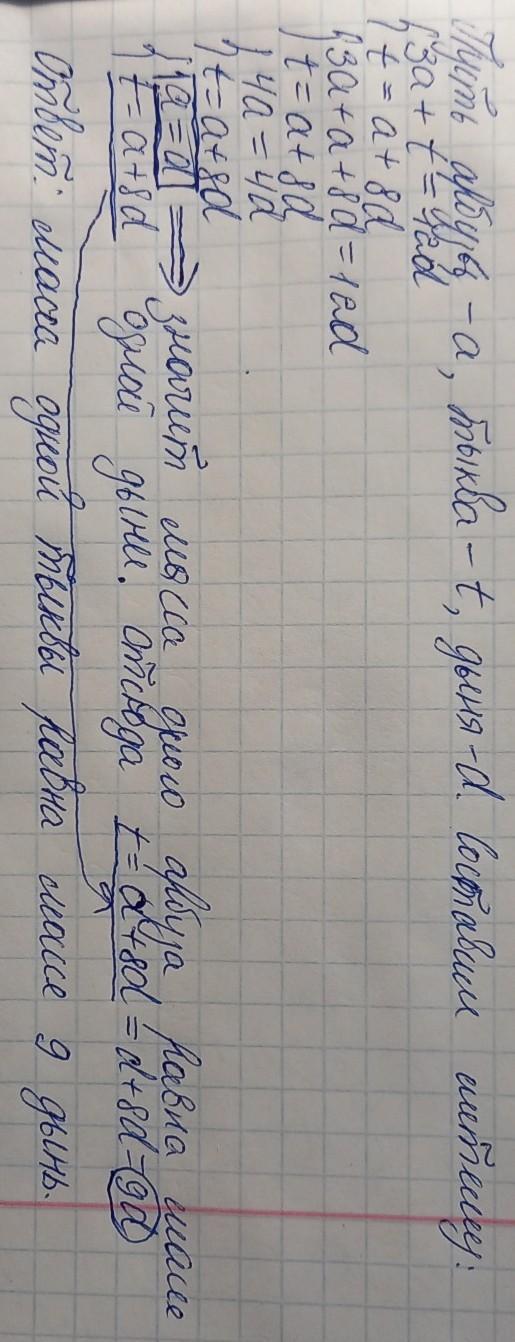 Пусть арбуз - a, тыква - t, дыня - d. Составим систему:
{ 3a + t = 12d
{ t = a + 8d
{ 3a + a + 8d = 12d
{ t = a + 8d
{ 4a = 4d
{ t = a + 8d
{ a = d ⟹ значит масса одного арбуза равна массе
{ t = a + 8d одной дыни. Отсюда t = d + 8d = d + 8d = 9d
Ответ: масса одной тыквы равна массе 9 дынь.